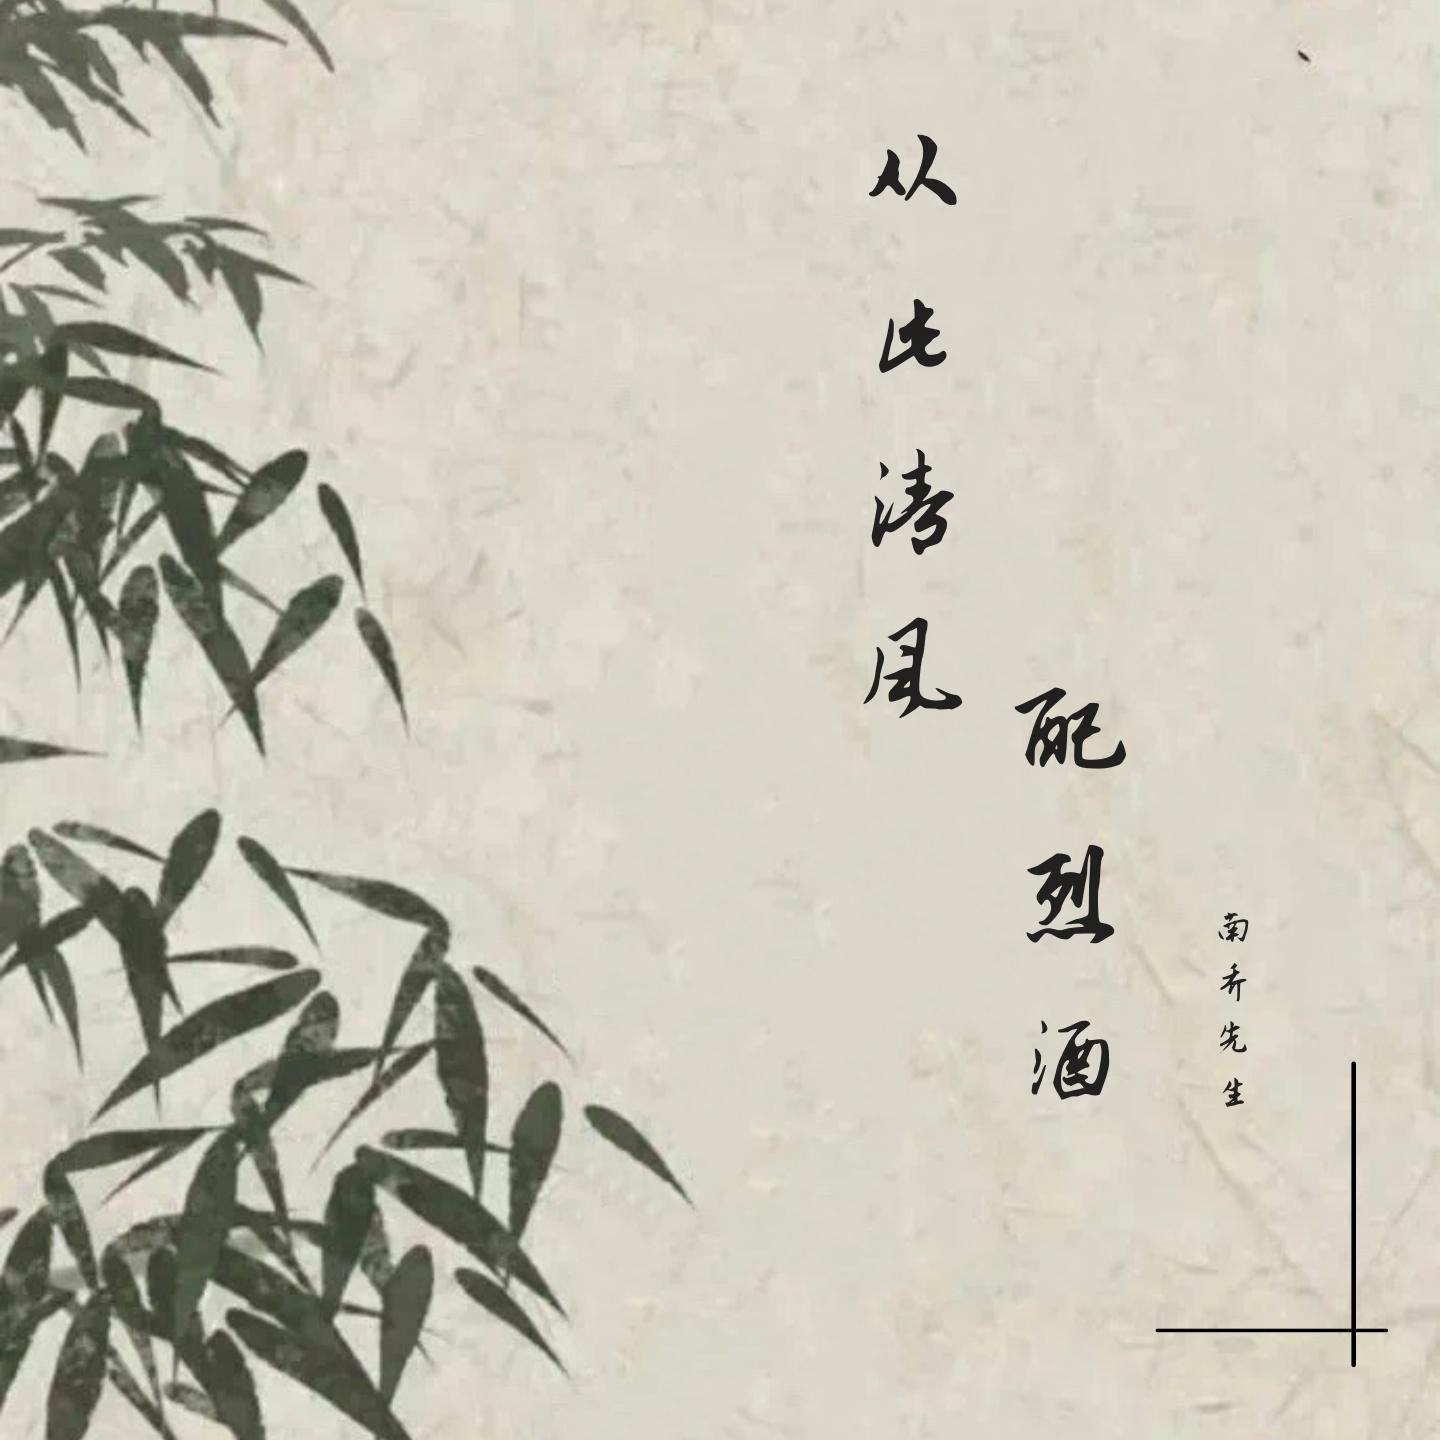 从此清风
配烈酒
南乔先生